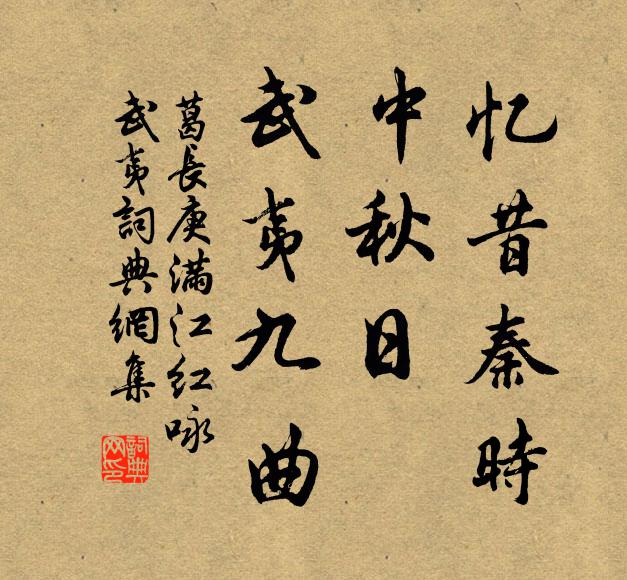 忆昔秦時
中秋日
武夷九曲
葛長庚滿江红咏
武夷詞典網集
詞典网印